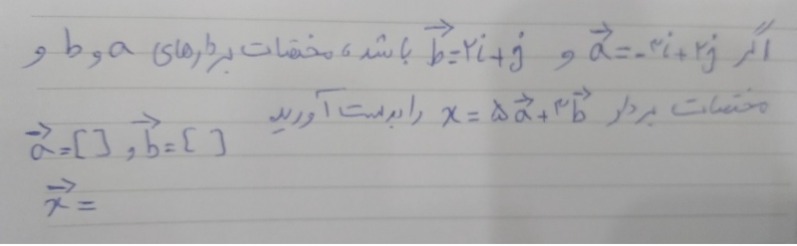 اگر a⃗ = -۳i + ۲j و b⃗ = ۲i + j باشد، مختصات بردارهای a و b و
مختصات بردار x = ۵a⃗ + ۳b⃗ را بدست آورید
a⃗ = [ ] , b⃗ = [ ]
x⃗ =